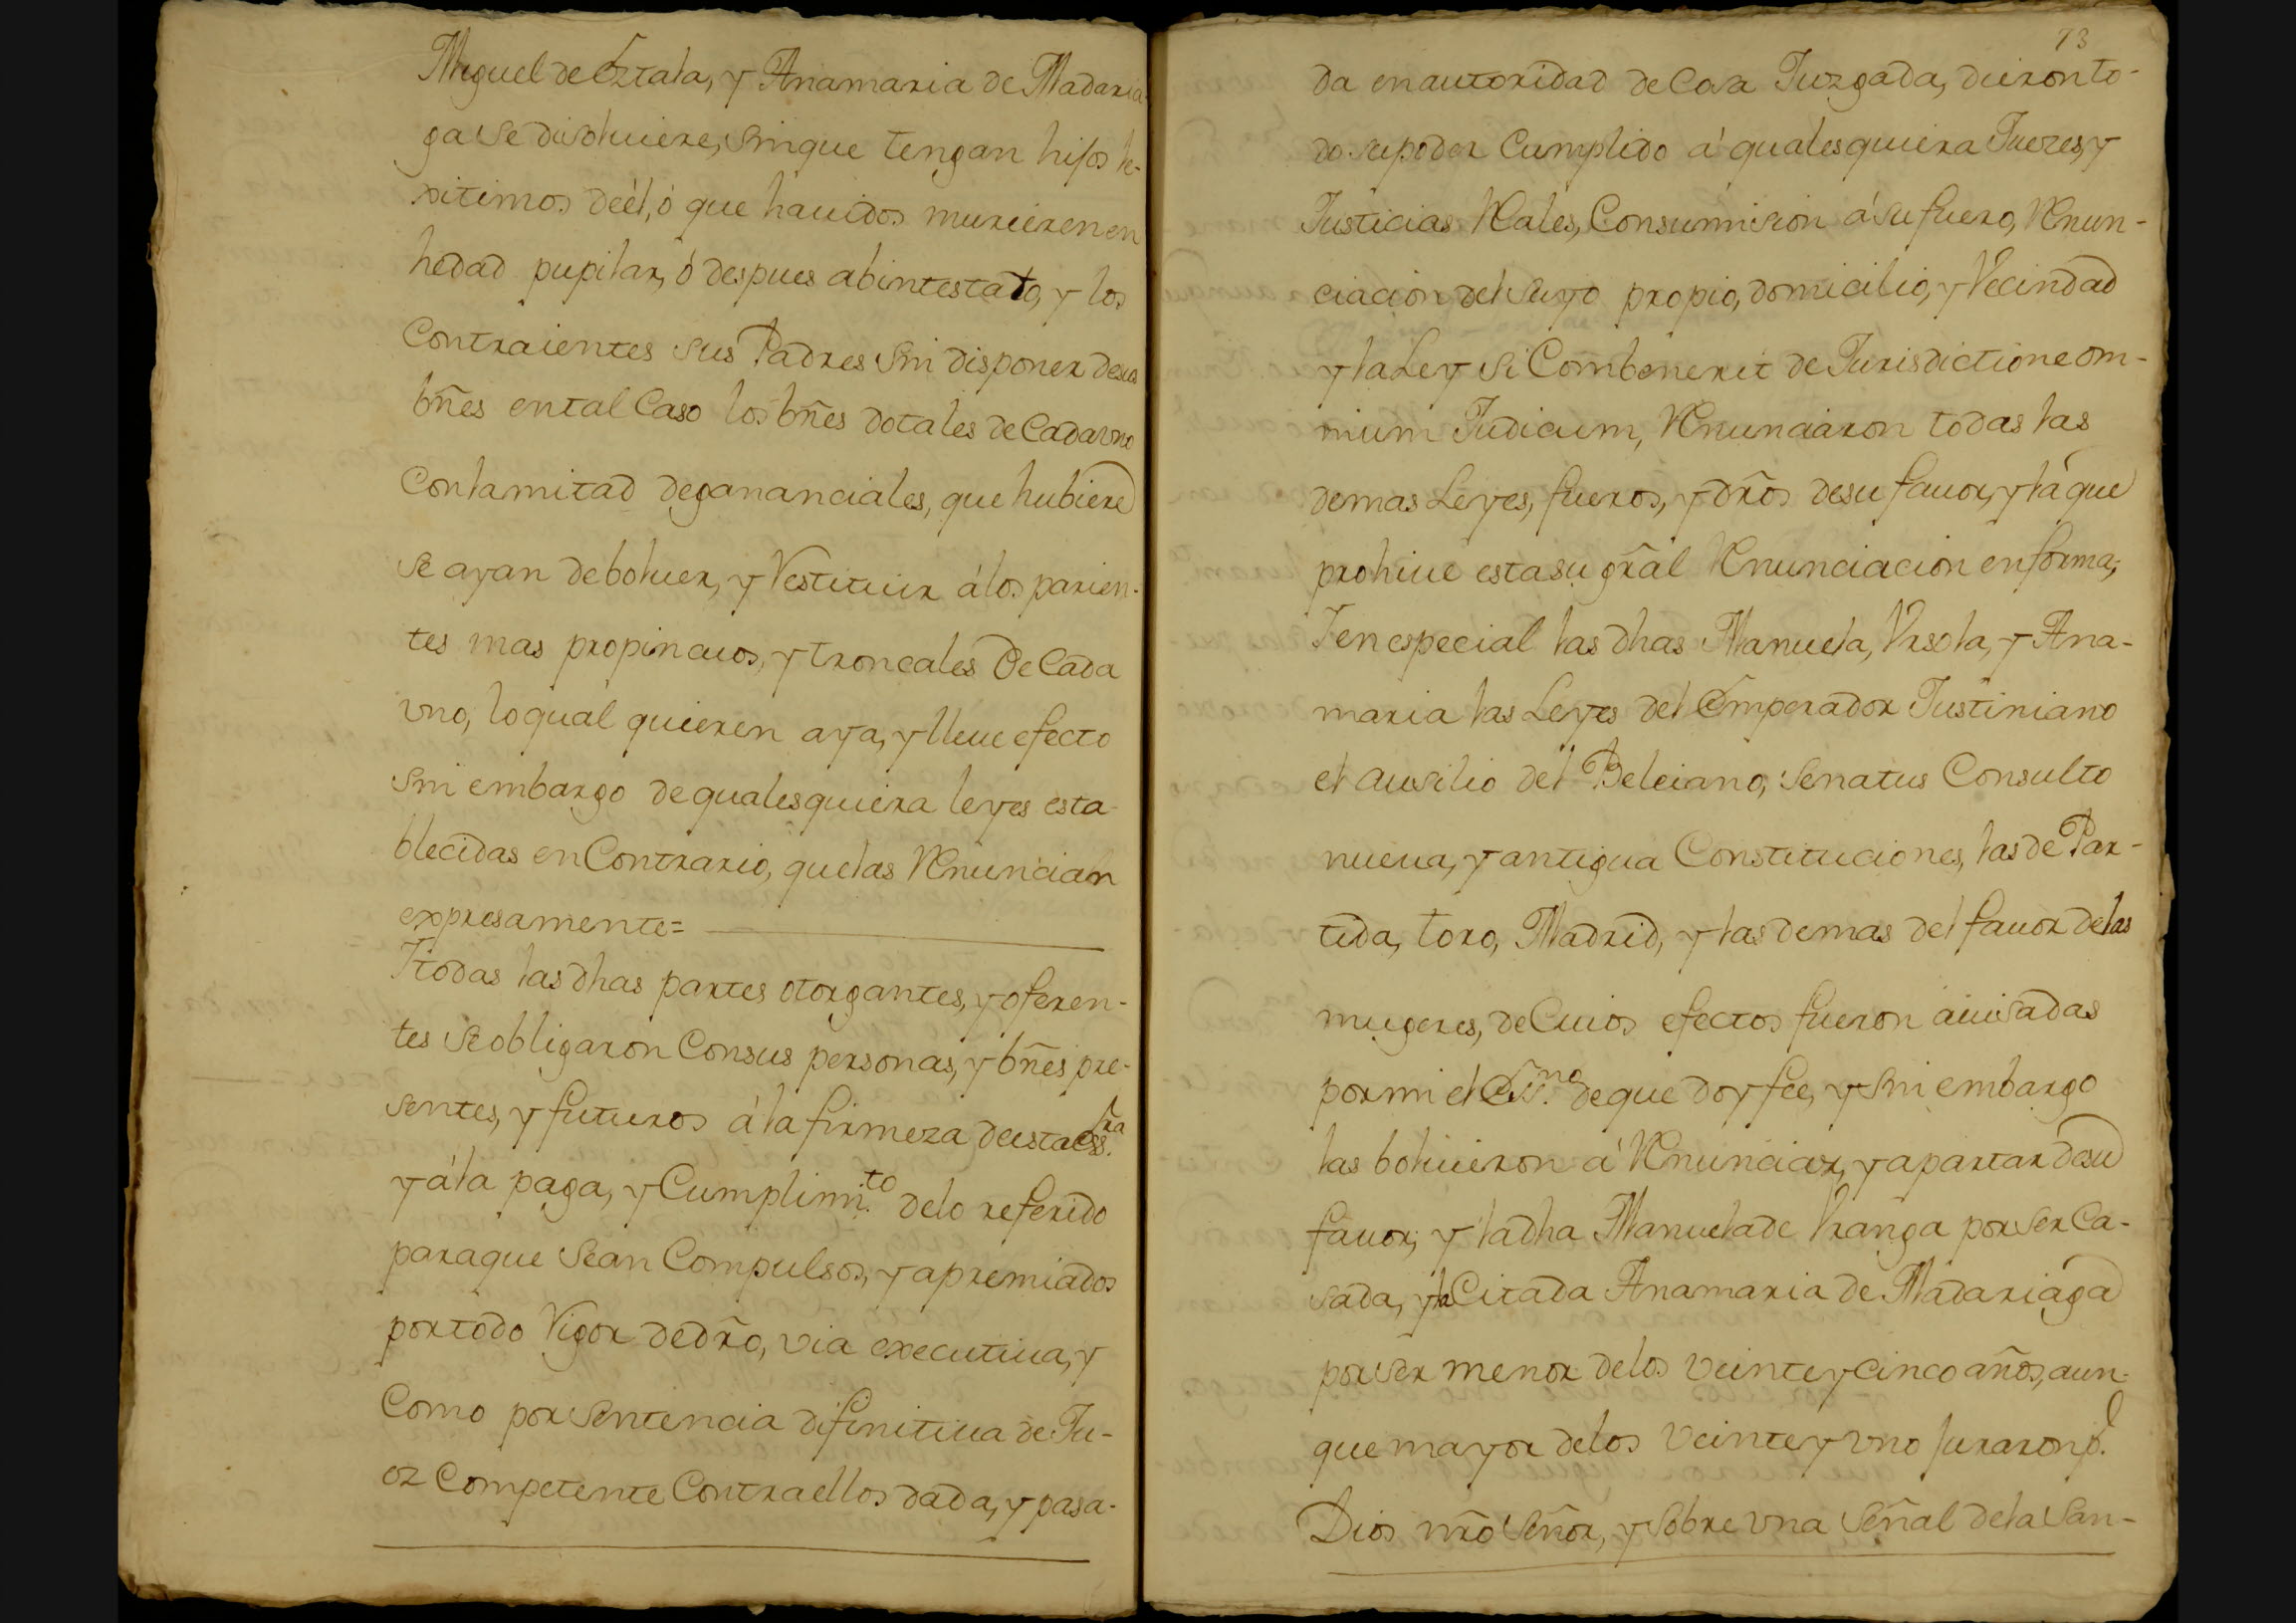 Miguel de Eztala, y Anamaria de Madaria-
ga se disoluiere, sin que tengan hijos le-
xitimos deél, ó que hauidos murieren en
hedad pupilar, ó despues abintestato, y los
Contraientes sus Padres sin disponer desus
bñes ental Caso los bñes dotales de Cada vno
Con la mitad de gananciales, que hubiere
se ayan deboluer, y Restituir á los parien-
tes mas propincuos, y troncales De Cada
vno, lo qual quieren aya, y lleue efecto
sin embargo de qualesquiera leyes esta-
blecidas en Contrario, que las Renuncian
expresamente=
Y todas las dhas partes otorgantes, y oferen-
tes se obligaron Con sus personas, y bñes pre-
sentes, y futuros á la firmeza de esta essra
y á la paga, y Cumplimto. delo referido
para que sean Compulsos, y apremiados
por todo Vigor de dro, via executiua, y
Como por sentencia difinitiua de Ju-
ez Competente Contra ellos dada, y pasa-
73
da en autoridad de Cosa Juzgada, dieron to-
do su poder Cumplido á qualesquiera Juezes, y
Justicias Reales, Consumision á su fuero, Renun-
ciacion del suyo propio, domicilio, y Vecindad
y la Ley si Combenerit de Jurisdictione om-
nium Judicum, Renunciaron todas las
demas Leyes, fueros, y dros de su fauor, y la que
prohiue esta su gral Renunciacion en forma,
Y en especial las dhas Manuela, Vrsola, y Ana-
maria las Leyes del Emperador Justiniano
el ausilio del Beleiano, senatus Consulto
nueua, y antigua Constituciones, las de Par-
tida, toro, Madrid, y las demas del fauor de las
mugeres, de Cuios efectos fueron auisadas
por mi el Essno. de que doy fee, y sin embargo
las boluieron á Renunciar, y apartar de su
fauor; y la dha Manuela de Vranga por ser Ca-
sada, y la Citada Anamaria de Madariaga
por ser menor de los veinte y cinco años, aun-
que mayor de los veinte y vno juraron pr.
Dios nro Señor, y sobre vna señal de la san-